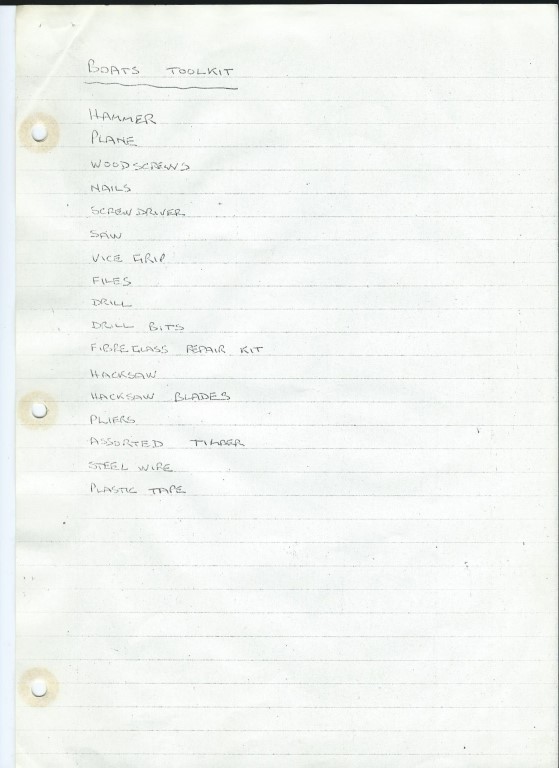 BOATS TOOLKIT
HAMMER
PLANE
WOODSCREWS
NAILS
SCREWDRIVER
SAW
VICE GRIP
FILES
DRILL
DRILL BITS
FIBREGLASS REPAIR KIT
HACKSAW
HACKSAW BLADES
PLIERS
ASSORTED TIMBER
STEEL WIRE
PLASTIC TAPE